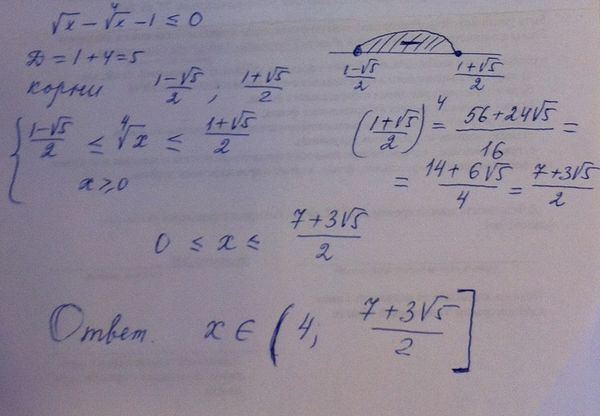 √x − ∜x − 1 ≤ 0
Д = 1 + 4 = 5
корни (1−√5)/2 ; (1+√5)/2
(1−√5)/2 (1+√5)/2
{ (1−√5)/2 ≤ ∜x ≤ (1+√5)/2
x ≥ 0
((1+√5)/2)^4 = (56+24√5)/16 =
= (14+6√5)/4 = (7+3√5)/2
0 ≤ x ≤ (7+3√5)/2
Ответ. x ∈ (4, (7+3√5)/2]